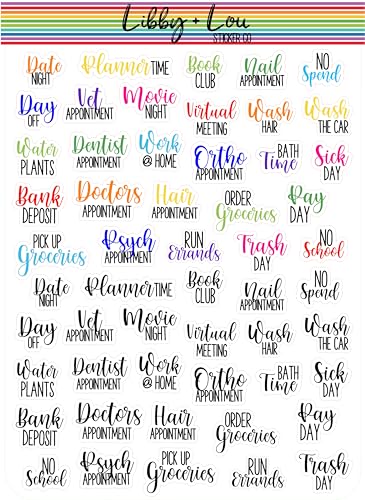 Libby + Lou
STICKER CO
Date NIGHT
Planner TIME
Book CLUB
Nail APPOINTMENT
NO Spend
Day OFF
Vet APPOINTMENT
Movie NIGHT
Virtual MEETING
Wash HAIR
Wash THE CAR
Water PLANTS
Dentist APPOINTMENT
Work @ HOME
Ortho APPOINTMENT
BATH Time
Sick DAY
Bank DEPOSIT
Doctors APPOINTMENT
Hair APPOINTMENT
ORDER Groceries
Pay DAY
PICK UP Groceries
Psych APPOINTMENT
RUN Errands
Trash DAY
NO School
Date NIGHT
Planner TIME
Book CLUB
Nail APPOINTMENT
NO Spend
Day OFF
Vet APPOINTMENT
Movie NIGHT
Virtual MEETING
Wash HAIR
Wash THE CAR
Water PLANTS
Dentist APPOINTMENT
Work @ HOME
Ortho APPOINTMENT
BATH Time
Sick DAY
Bank DEPOSIT
Doctors APPOINTMENT
Hair APPOINTMENT
ORDER Groceries
Pay DAY
NO School
Psych APPOINTMENT
PICK UP Groceries
RUN Errands
Trash DAY